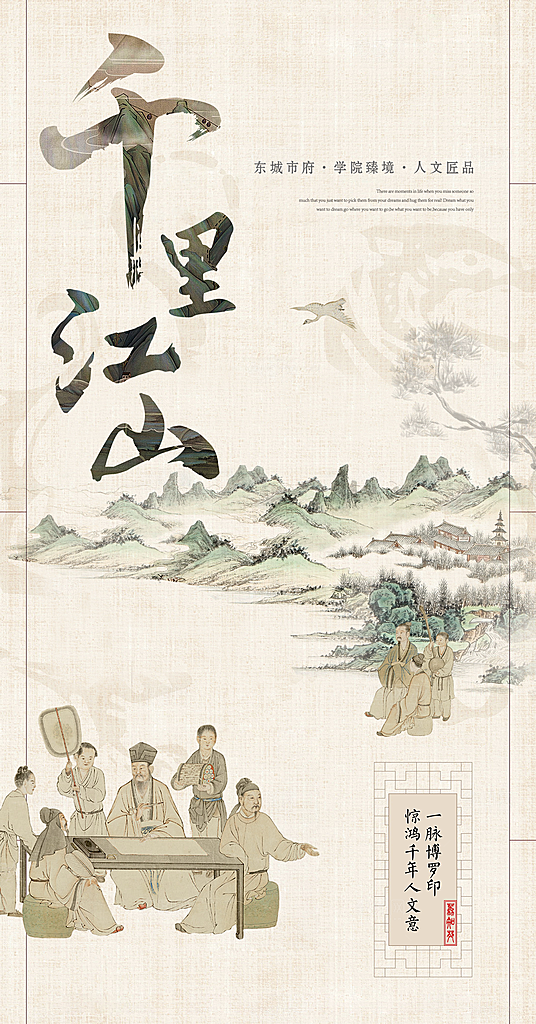 千里江山
东城市府·学院臻境·人文匠品
There are moments in life when you miss someone so
much that you just want to pick them from your dreams and hug them for real! Dream what you
want to dream;go where you want to go;be what you want to be,because you have only
一脉博罗印
惊鸿千年人文意